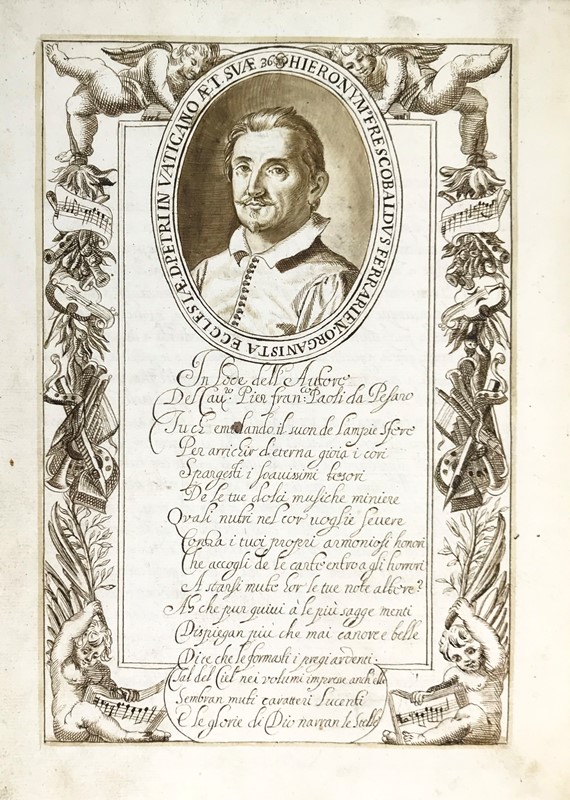 HIERONYM. FRESCOBALDVS FERRARIEN. ORGANISTA ECCLESIÆ D. PETRI IN VATICANO ÆT. SVÆ 36
In lode dell' Autore
Del Cau.ro Pier fran.co Paoli da Pesaro
Tu ch' emulando il suon de l'ampie sfere
Per arrichir d'eterna gioia i cori
Spargesti i soauissimi tesori
De le tue dolci musiche miniere
Quasi nutri nel cor uoglie seuere
Contra i tuoi proprii armoniosi honori
Che accogli de le carte entro a gli horrori
A starsi mute hor le tue note altere?
No che pur quiui à le più sagge menti
Dispiegan più che mai canore e belle
Dice che le formasti i pregi ardenti.
Tal del Ciel nei volumi impresse anch' elle
Sembran muti caratteri lucenti
E le glorie di Dio narran le stelle